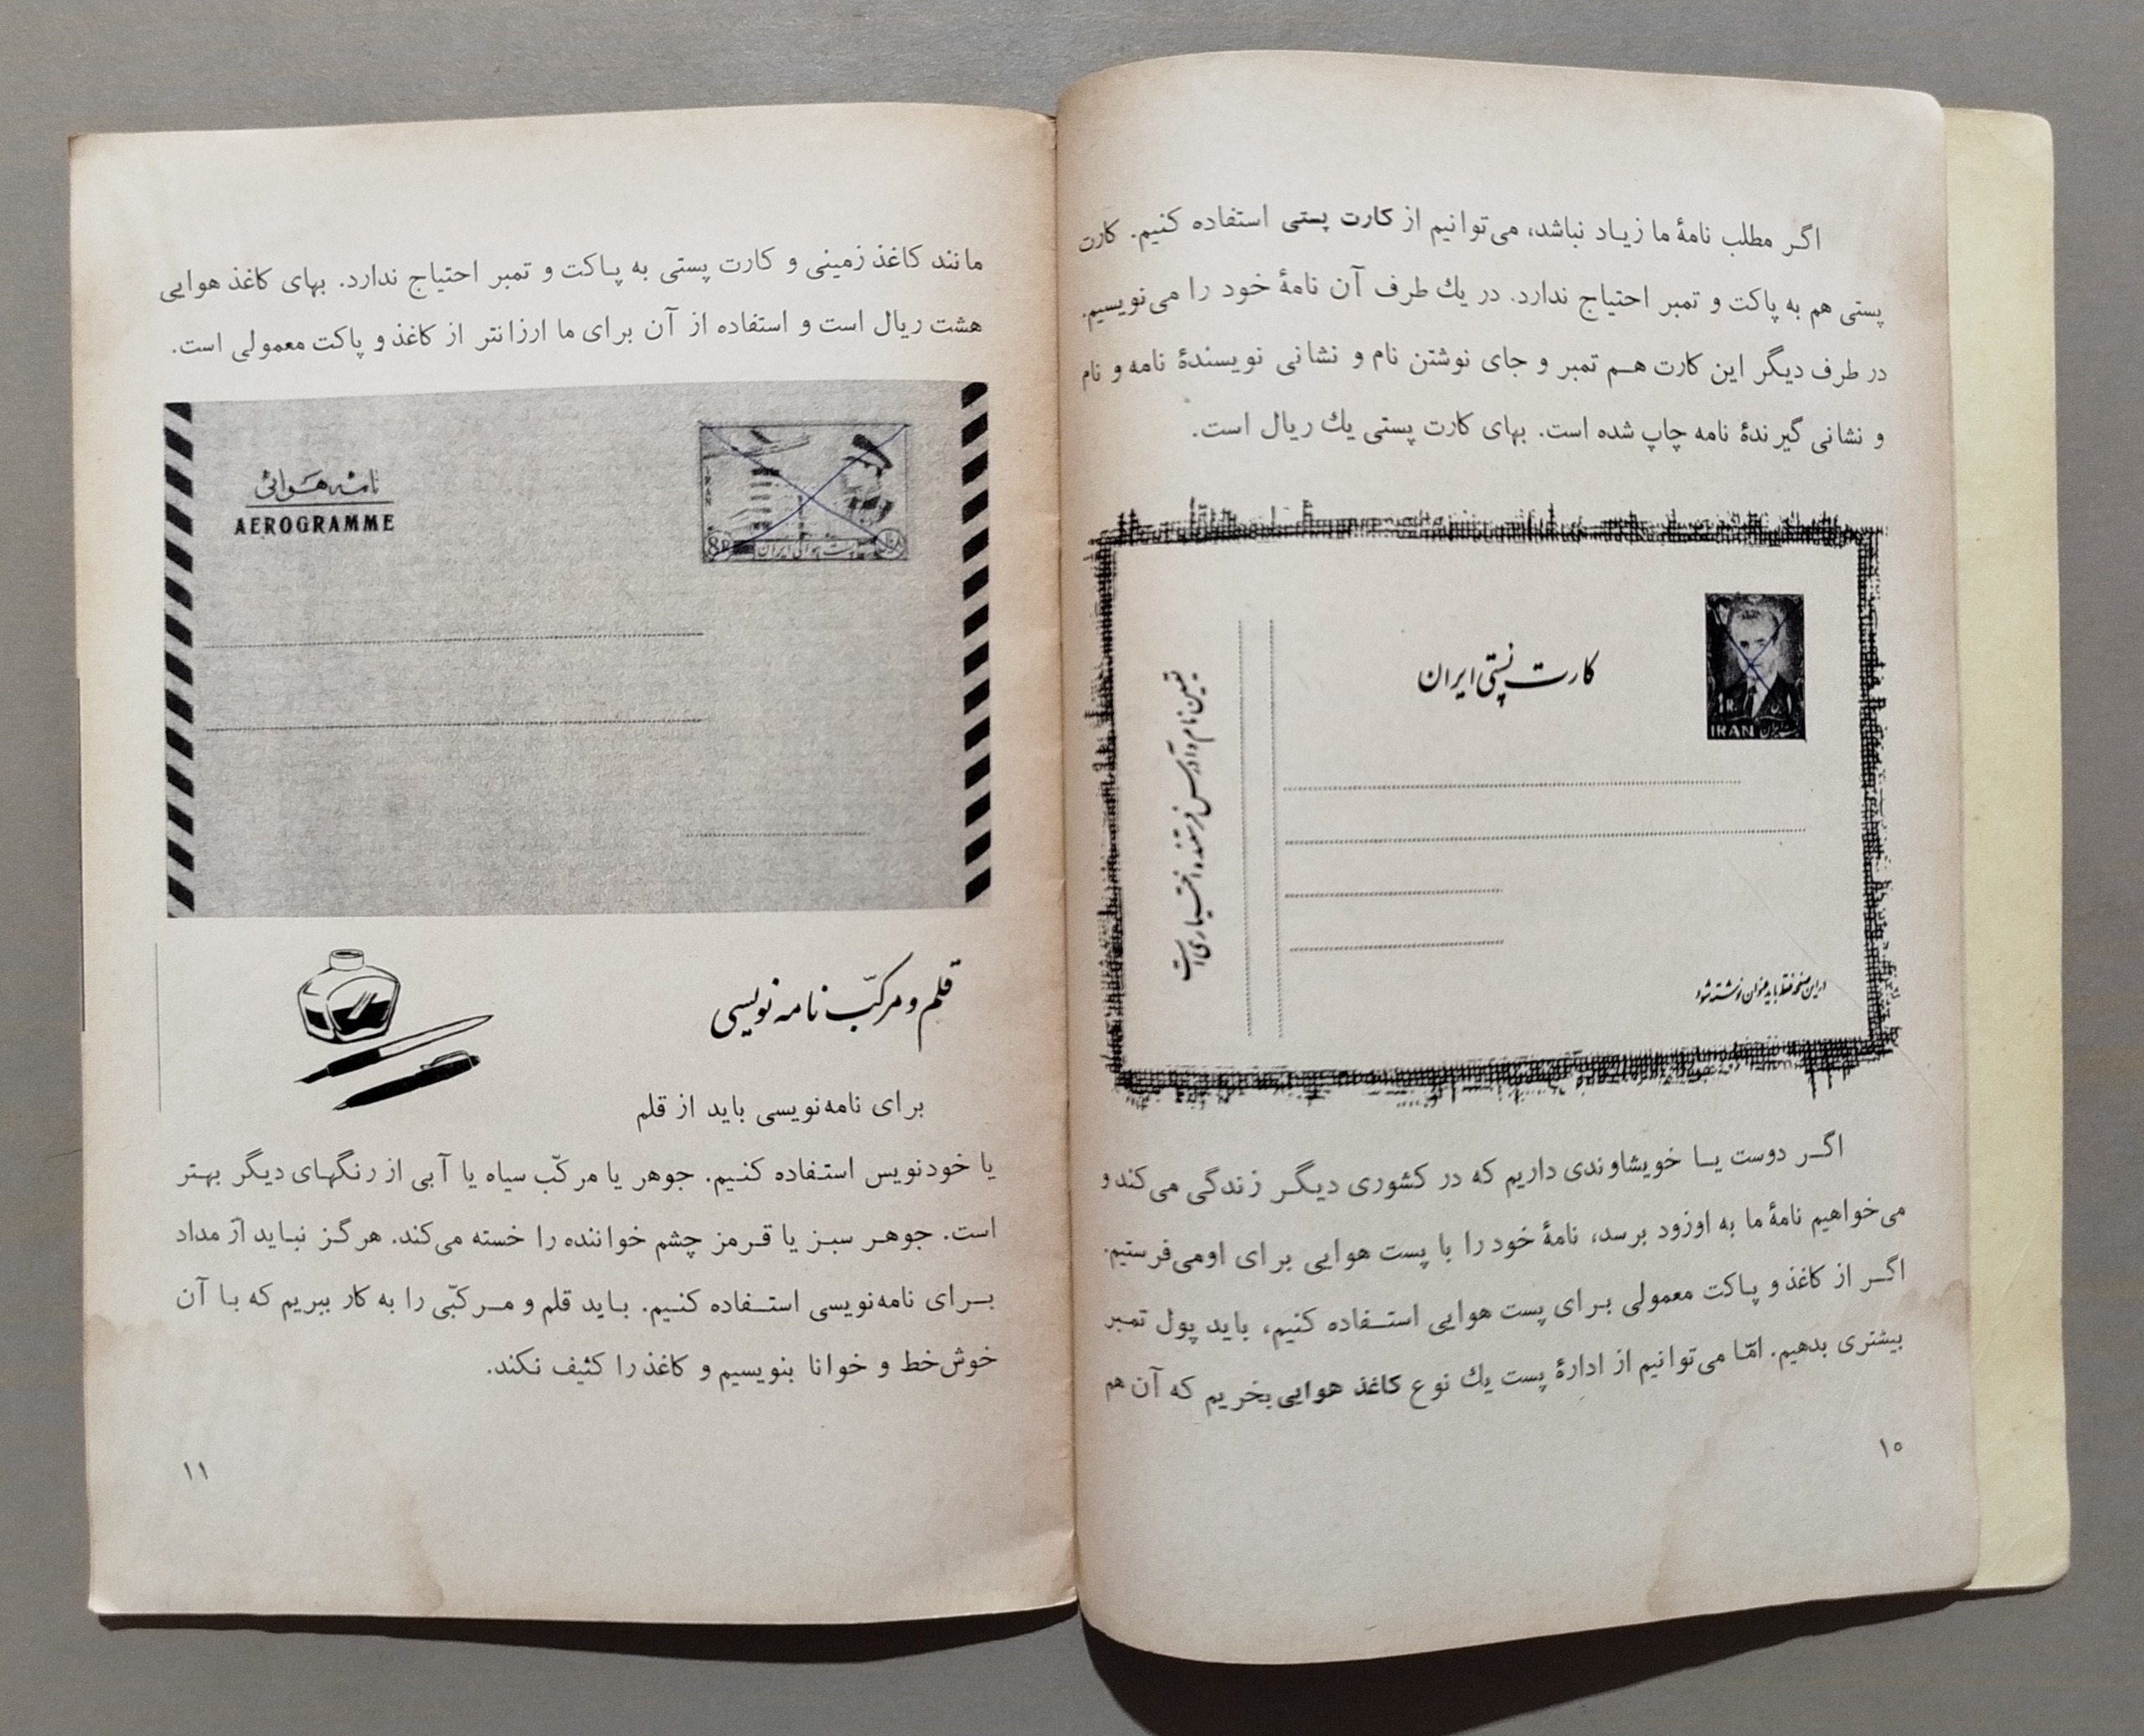 اگر مطلب نامهٔ ما زیاد نباشد، می‌توانیم از کارت پستی استفاده کنیم. کارت
پستی هم به پاکت و تمبر احتیاج ندارد. در یك طرف آن نامهٔ خود را می‌نویسیم.
در طرف دیگر این کارت هم تمبر و جای نوشتن نام و نشانی نویسندهٔ نامه و نام
و نشانی گیرندهٔ نامه چاپ شده است. بهای کارت پستی یك ریال است.
1R ۱
IRAN
کارت پستی ایران
تعیین نام و آدرس فرستنده اختیاری است
در این صفحه فقط باید عنوان نوشته شود
اگر دوست یا خویشاوندی داریم که در کشوری دیگر زندگی می‌کند و
می‌خواهیم نامهٔ ما به او زود برسد، نامهٔ خود را با پست هوایی برای او می‌فرستیم.
اگر از کاغذ و پاکت معمولی برای پست هوایی استفاده کنیم، باید پول تمبر
بیشتری بدهیم. امّا می‌توانیم از ادارهٔ پست یك نوع کاغذ هوایی بخریم که آن هم
۱۰
مانند کاغذ زمینی و کارت پستی به پاکت و تمبر احتیاج ندارد. بهای کاغذ هوایی
هشت ریال است و استفاده از آن برای ما ارزانتر از کاغذ و پاکت معمولی است.
نامه هوائی
AEROGRAMME
IRAN
8R پست هوائی ایران
قلم و مرکّب نامه نویسی
برای نامه‌نویسی باید از قلم
یا خودنویس استفاده کنیم. جوهر یا مرکّب سیاه یا آبی از رنگهای دیگر بهتر
است. جوهر سبز یا قرمز چشم خواننده را خسته می‌کند. هرگز نباید از مداد
برای نامه‌نویسی استفاده کنیم. باید قلم و مرکّبی را به کار ببریم که با آن
خوش‌خط و خوانا بنویسیم و کاغذ را کثیف نکند.
۱۱